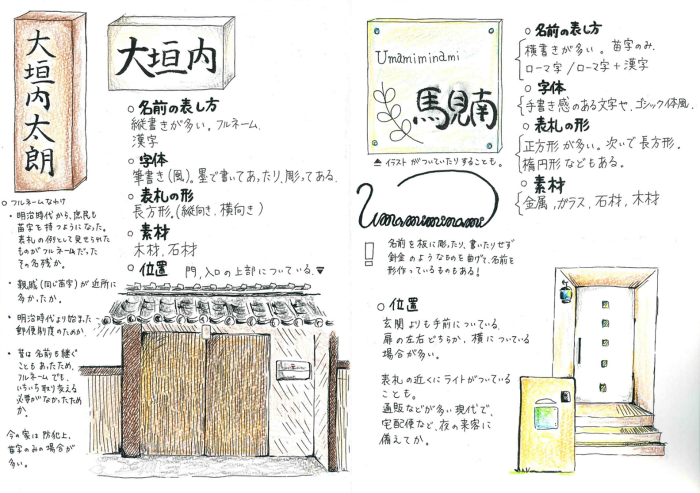 大垣内太朗
大垣内
○名前の表し方
縦書きが多い。フルネーム.
漢字
○字体
筆書き(風)。墨で書いてあったり、彫ってある.
○表札の形
長方形.(縦向き、横向き)
○素材
木材、石材
○位置 門、入口の上部についている.▼
○フルネームなわけ
・明治時代から、庶民も
苗字を持つようになった。
表札の例として見せられた
ものがフルネームだった
その名残か。
・親戚(同じ苗字)が近所に
多かったか。
・明治時代より始まった
郵便制度のためか
・昔は名前も継ぐ
こともあったため、
フルネームでも、
いちいち取り変える
必要がなかったため
か。
今の家は防犯上、
苗字のみの場合が
多い。
Umamiminami
馬見南
▲イラストがついていたりすることも。
Umamiminami
○名前の表し方
横書きが多い。苗字のみ.
ローマ字/ローマ字+漢字
○字体
手書き感のある文字や、ゴシック体風.
○表札の形
正方形が多い。次いで長方形.
楕円形などもある。
○素材
金属、ガラス、石材、木材
!
名前を板に彫ったり、書いたりせず
針金のようなものを曲げて、名前を
形作っているものもある!
○位置
玄関よりも手前についている.
扉の左右どちらか、横についている
場合が多い。
表札の近くにライトがついている
ことも。
通販などが多い現代で、
宅配便など、夜の来客に
備えてか。